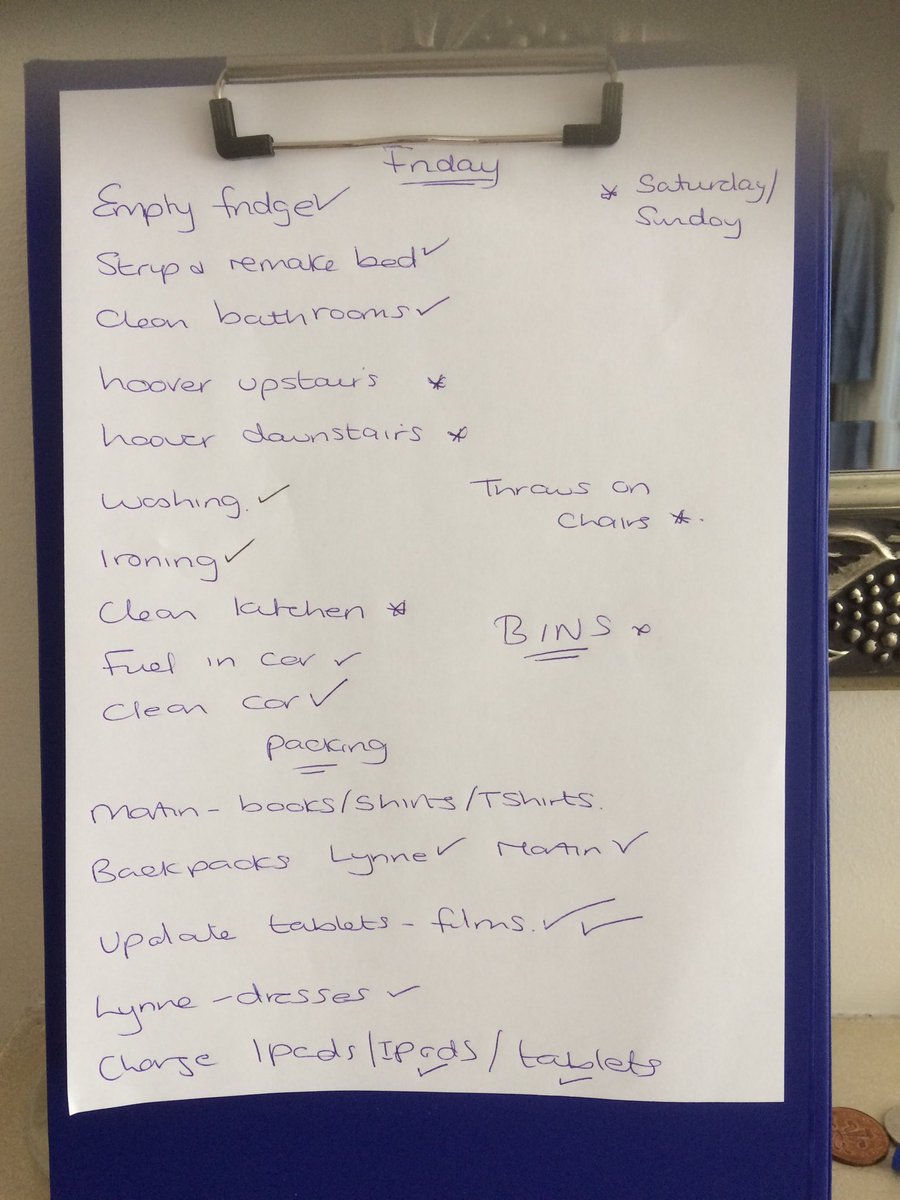 Friday
* Saturday/
Sunday
Empty fridge ✓
Strip & remake bed ✓
Clean bathrooms ✓
hoover upstairs *
hoover downstairs *
Throws on
chairs *.
Washing. ✓
Ironing ✓
Clean kitchen *
BINS *
Fuel in car ✓
Clean car ✓
packing
Martin - books/Shirts/TShirts.
Backpacks Lynne ✓ Martin ✓
Update tablets - films. ✓ ✓
Lynne - dresses ✓
Charge Ipads/IPods ✓/tablets ✓